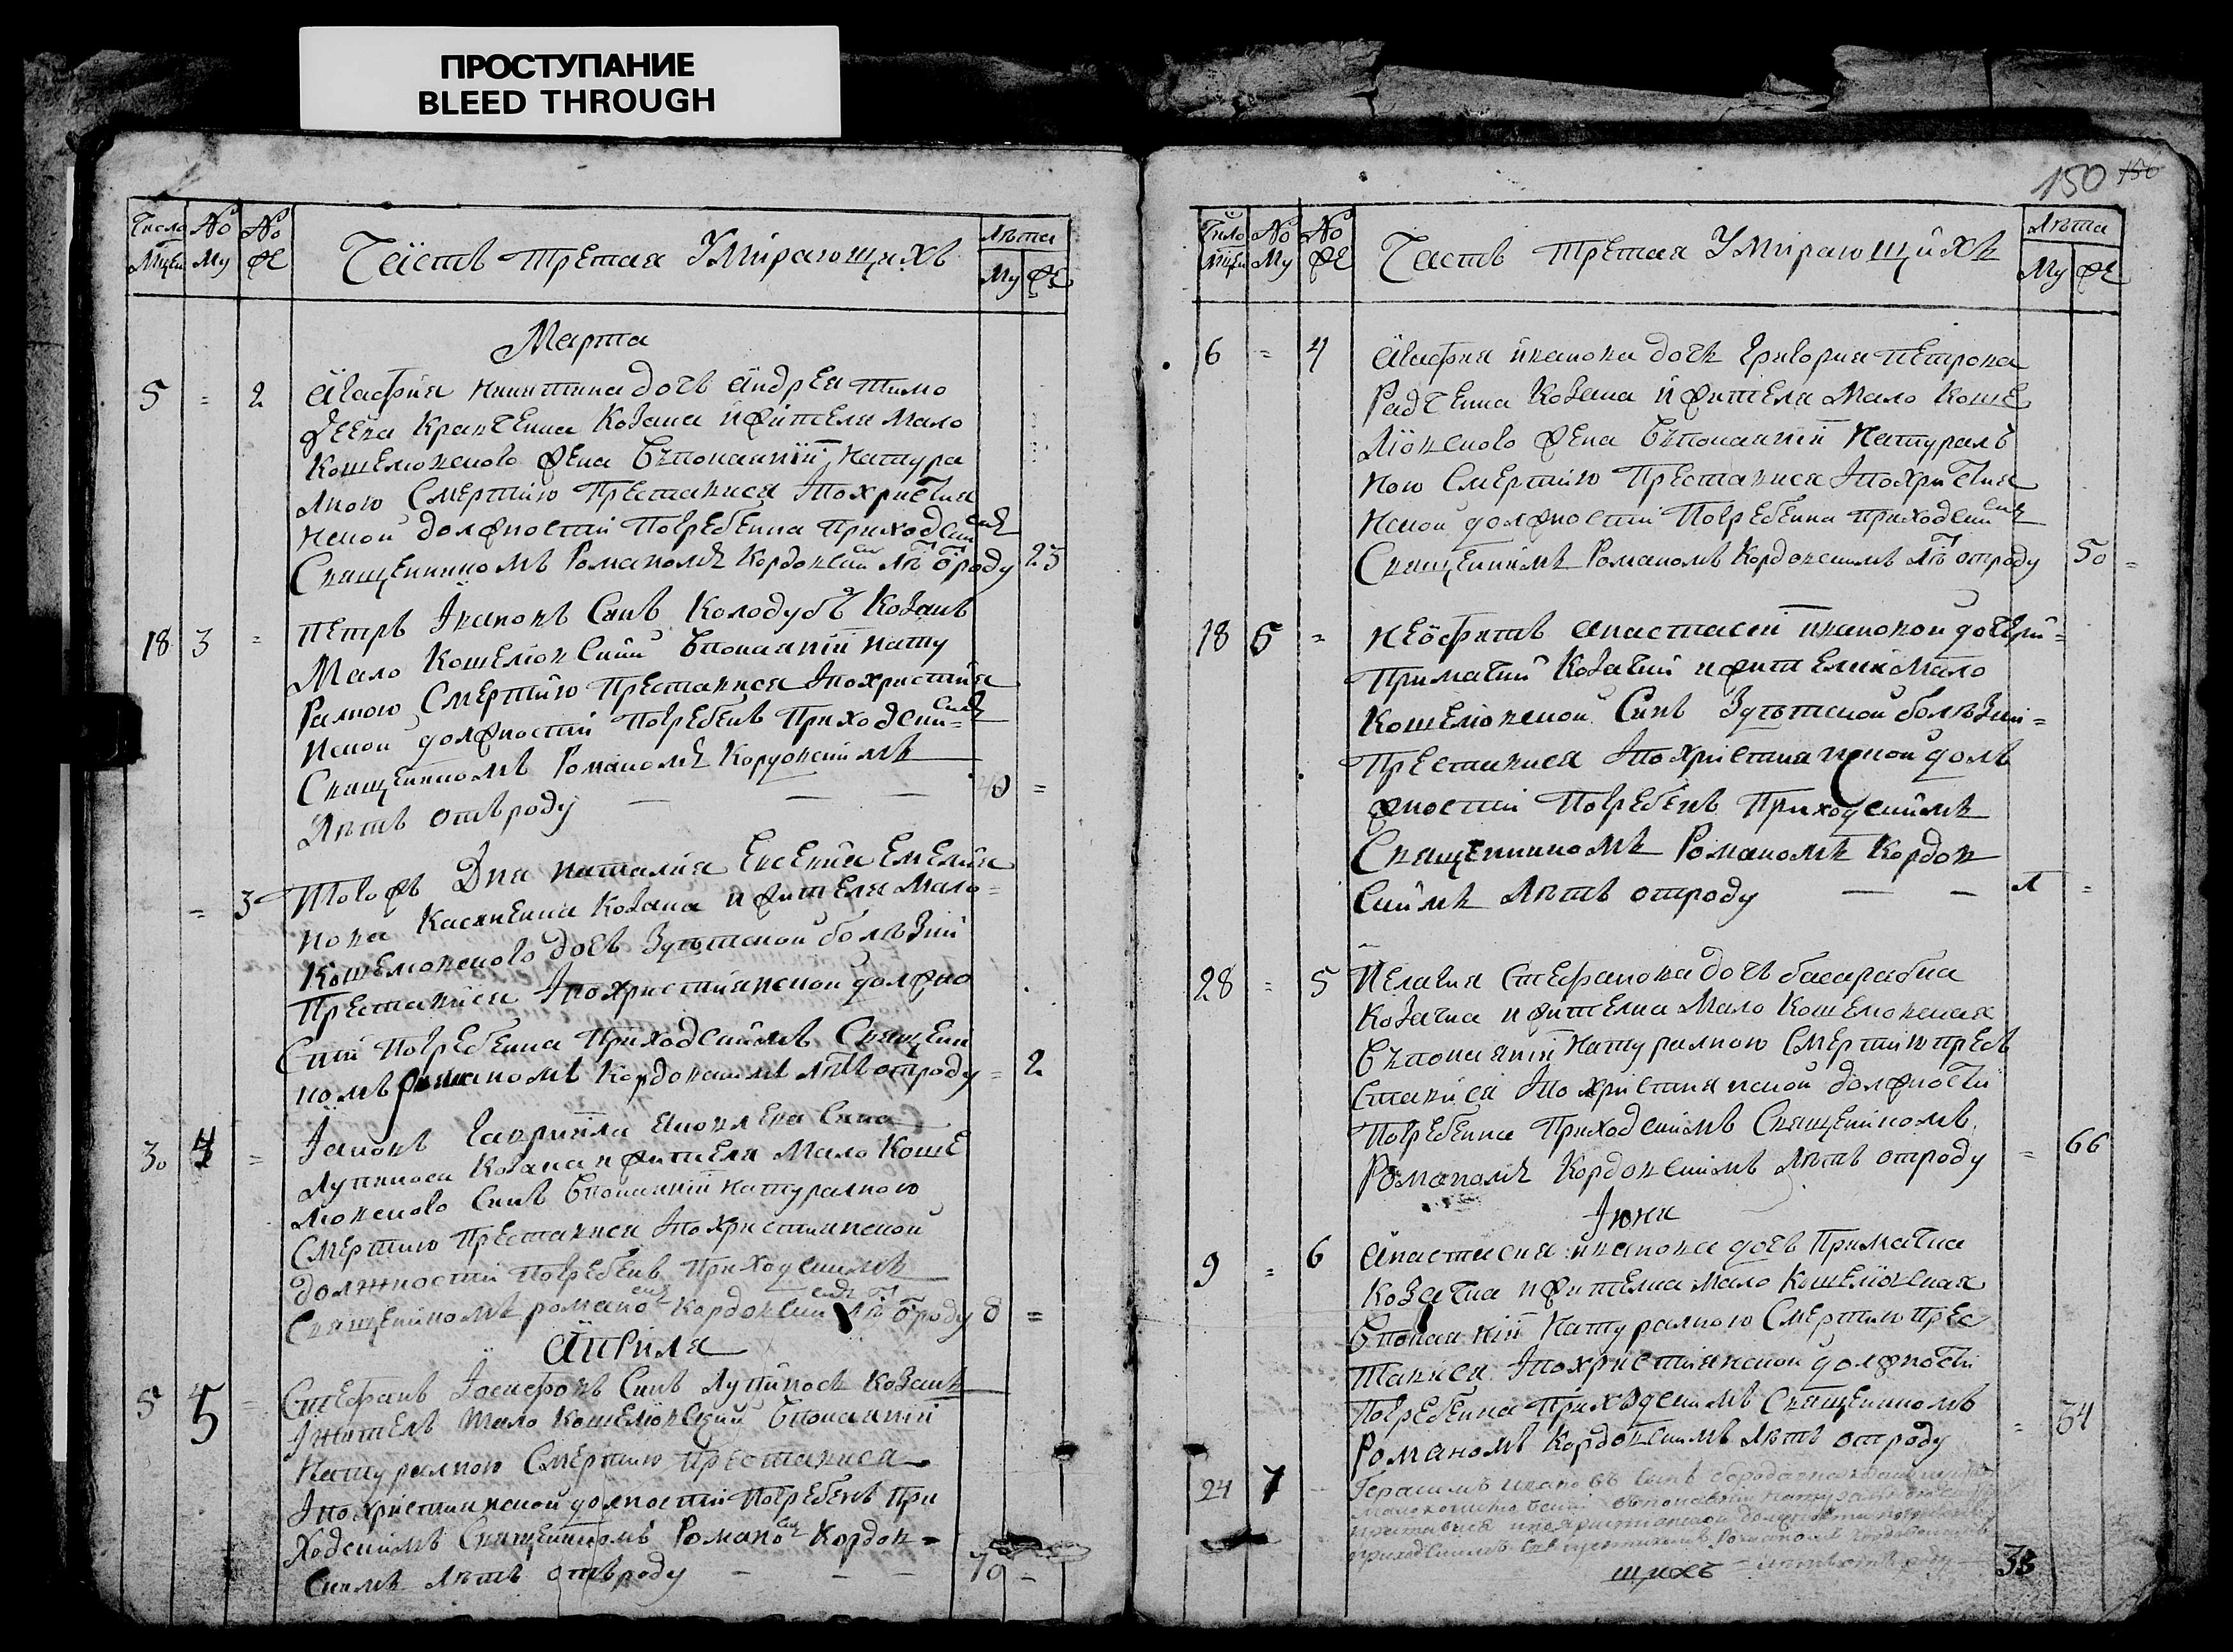 ПРОСТУПАНИЕ
BLEED THROUGH
150 150
Число Мцей
№ Му
№ Же
Часть третая Умѣрающихъ
Лѣта
Му Же
Марта
5 = 2 Агафия Никитина дочь Андрея Тимо
феева Кравченка козака и жителя мало
Кошелювского жена въ покаянии натура
лною смертию преставися и по христия
нской должности погребенна приходским
священникомъ Романомъ Кордовским лѣт от роду 23
18 3 = Петръ Івановъ синъ Колодубъ козакъ
мало Кошелювский в покаянии нату
ралною смертию преставися и по христия
нской должности погребенъ приходским
священникомъ Романомъ Кордовскимъ
лѣтъ отъ роду — — — 40 =
= 3 Того жъ дня Наталия Евсевия Емелия
нова козака и жителя мало
Кошелювского дочь зудетской болѣзни
преставися и по християнской должно
сти погребенна приходскимъ священ
номъ Романомъ Кордовскимъ лѣтъ отроду = 2
30 4 = Гавриила сина
Лупиноса козака и жителя мало Коше
лювского синъ в покаянии натуралною
смертию преставися и по християнской
должности погребенъ приходскимъ
священномъ Романо Кордовским лѣт от роду 8 =
Априля
5 5 = Стефанъ Іосифовъ синъ Лупиносъ козакъ
и житель мало Кошелювский в покаянии
натуралною смертию преставися
и по християнской должности погребенъ при
ходскимъ священникомъ Романо Кордов =
скимъ лѣтъ отъ роду — — — 70 =
Число Мцей
№ Му
№ Же
Часть третая Умѣрающихъ
Лѣта
Му Же
6 = 4 Агафия Иванова дочь Григория Петрова
Радченка козака и жителя мало Коше
лювского жена въ покаянии натурал
ною смертию преставися и по христия
нской должности погребенна приходским
священникомъ Романомъ Кордовскимъ лѣт отроду 50 =
18 5 = Неофитъ Анастасии Ивановой дочери =
Примачий козачий и жителки мало
Кошелювской синъ зудетской болѣзни =
преставися и по християнской долъ
жности погребенъ приходскимъ
священникомъ Романомъ Кордов
скимъ лѣтъ отроду — — 1 =
28 = 5 Пелагия Стефанова дочь Басарабка
козачка и жителка мало Кошелювская
въ покаянии натуралною смертию прес
ставися и по християнской должности
погребенна приходскимъ священникомъ
Романомъ Кордовскимъ лѣтъ отроду = 66
Іюня
9 = 6 Анастасия Иванова дочь Примачка
козачка и жителка мало Кошелювская
в покаянии натуралною смертию прес
тавися и по християнской должности
погребенна приходскимъ священникомъ
Романомъ Кордовскимъ лѣтъ отроду = 34
24 7 = Герасимъ Ивановъ синъ
малокошелювский в покаянии натуралною
преставися и по христианской должности погребенъ
приходскимъ священникомъ Романомъ Кордовскимъ
лѣтъ отъ роду — 33